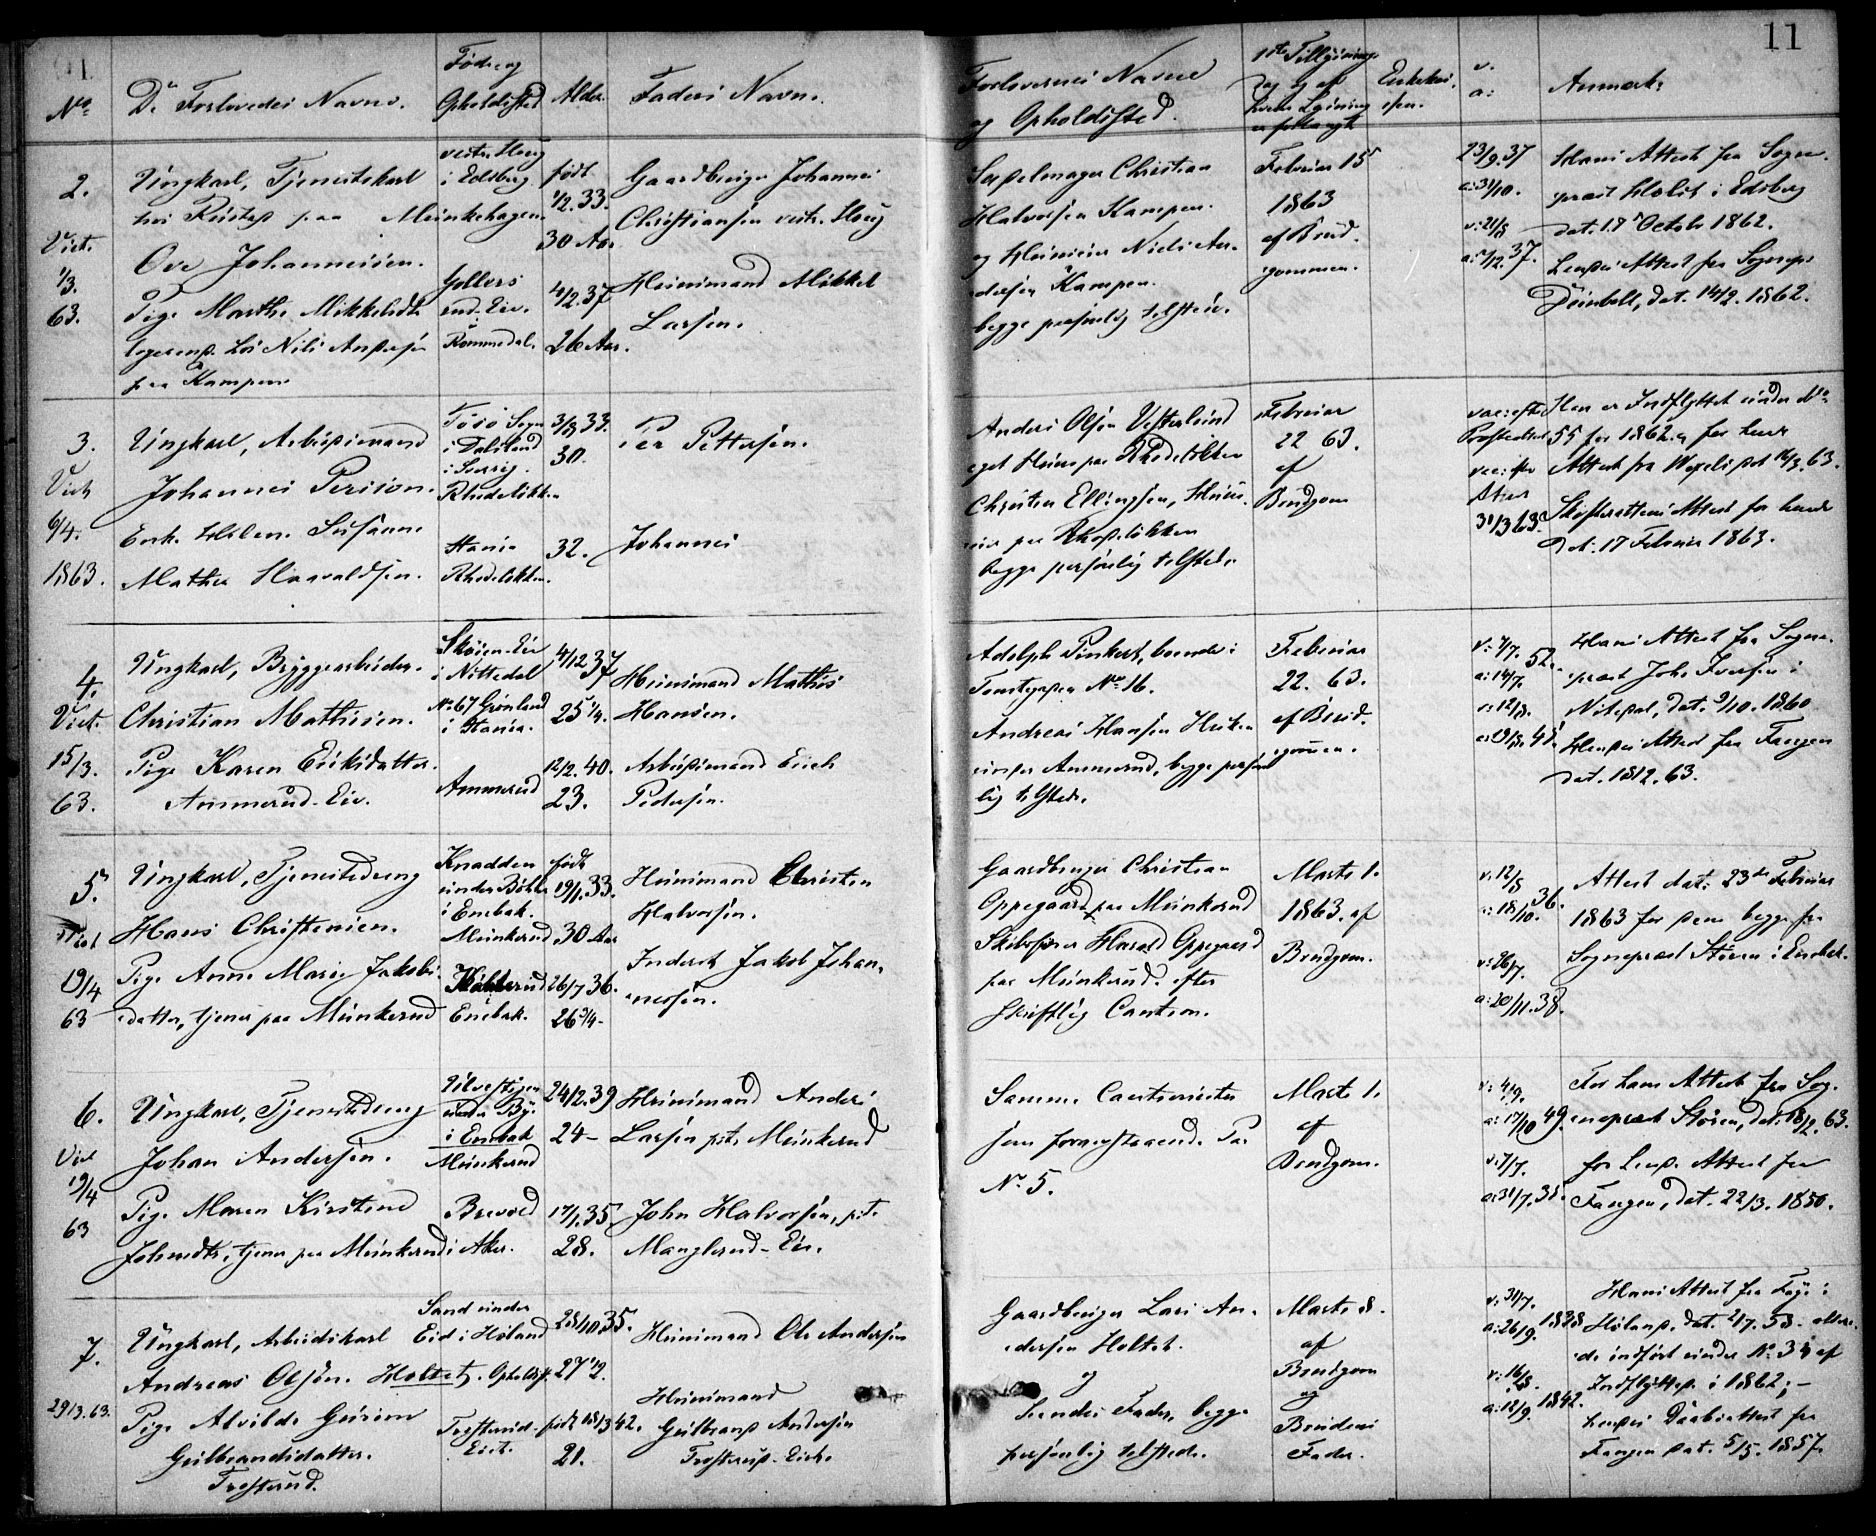 11
No
De Forlovedes Navne.
Føde og
Opholdsted
Alder.
Faders Navn.
Forlovernes Navne
og Opholdsted.
1ste Tillysnings
Dag og af
hvem Lysning
er forlangt
v.
a:
Anmærk:
2.
Viet.
1/3.
63.
Ungkarl, Tjenestekarl
paa Munkehagen
Ove Johannesen.
Pige Marthe Mikkelsdtr
logerende hos Nils Andersen
paa Kampen
vestre Houg
i Edsberg
Gullers
und. Eie.
Rommedal.
født
1/2.33.
30 Aar
4/2.37
26 Aar.
Gaardbruger Johannes
Christiansen vestre Houg
Huusmand Mikkel
Larsen.
Christian
Halvorsen Kampen.
og Huuseier Niels An-
dersen Kampen.
begge personlig tilstede.
Februar 15
1863
af Brud-
gommen.
23/9.37
a:31/10.
v:21/8
a:5/12.37.
Hans Attest fra Sogne-
præst Holst i Edsberg
dat. 18 Octobr 1862.
Hendes Attest fra Sognepr
dat. 14/2. 1862.
3.
Viet
6/4.
1863.
Ungkarl, Arbeidsmand
Johannes Person.
Enke Helene Susanne
Mathea Haavaldsen.
Tösö Sogn
i Dalsland
i Sverrig.
Rhodeløkken
Stania
Rhodeløkken.
3/3 33.
30.
32.
Per Pettersen.
Johannes
Anders Olsen Vesterlund
eget Huus paa Rhodeløkken
Christen Ellingsen, Huus-
eier paa Rhodeløkken
begge personlig tilstede
Februar
22 63.
af
Brudgom
vac: efter
vac: for
Aker
31/3 63.
Han er Indflyttet under No
55 for 1862. og for hende
Attest fra Wexels dat 16/3.63.
Skifterettens Attest for hende
Dat: 17 Februar 1863.
4.
Viet.
15/3.
63.
Ungkarl, Bryggearbeider.
Christian Mathisen.
Pige Karen Eriksdatter.
Ammerud-Eie.
Skøien-Eie
i Nittedal
No 67 Grønland
i Stania.
Ammerud
4/12 37
25 1/4.
12/2. 40.
23.
Huusmand Mathis
Hansen.
Arbeidsmand Erich
Pedersen.
Adolph Pinkert, boende i
Tomtegaden No 16.
Andreas Hansen
under Ammerud, begge person-
lig tilstede.
Februar
22. 63.
af Brud-
gommen.
v:7/7. 52.
a:14/7.
v:12/8.
a:19/8. 48.
Hans Attest fra Sogne-
præst Johs Iversen i
Nitedal, dat. 9/10. 1860
Hendes Attest fra Fangen
dat. 18/2.63.
5.
Viet
19/4
63
Ungkarl, Tjenestedreng
Hans Christensen.
Pige Anne Marie Jakobs-
datter, tjener paa Munkerud
Knadden
under Böhler
i Enebak.
Munkerud
Enebak.
født
19/1.33.
30 Aar
26/7 36.
26 3/4-
Huusmand Christen
Halvorsen.
Inderst Jakob Johan-
nesen.
Gaardbruger Christian
Oppegaard paa Munkerud
Skibsfører Harald Oppegaard
paa Munkerud. efter
skriftlig Caution.
Marts 1.
1863. af
Brudgom.
v:12/8 36.
a:18/10.
v:26/7.
a:20/11.38.
Attest dat: 23de Februar
1863 for dem begge fra
Sognepræst Støren i Enebak.
6.
Viet
19/4
63
Ungkarl, Tjenestedreng
Johan Andersen.
Pige Maren Kirstine
Johnsdtr, tjener paa Munkerud
under By.
i Enebak
Munkerud
Brevod
i Aker.
24/2.39
24-
17/1.35
28.
Huusmand Anders
Larsen pt. Munkerud
John Halvorsen, pt.
Manglerud-Eie.
Samme Cautionister
som foranstaaende Par
No 5.
Marts 1.
af
Brudgom.
v:4/9.
a:17/10 49.
v:7/7.
a:31/7.35.
For ham Attest fra Sog-
nepræst Støren, dat. 18/2.63.
for hende Attest fra
Fangen, dat. 22/3. 1850.
7.
29/3.63.
Ungkarl, Arbeidskarl
Andreas Olsön. Holtet
Pige Alvilde Gurine
Gulbrandsdatter.
Trosterud.
Sand under
Eid i Høland
Opholdsst.
Trosterud-
Eiet.
28/10.35.
27 1/2.
født 18/3 42.
21.
Huusmand Ole Andersen
Huusmand
Gulbrand Andersen
Trosterud-Eie.
Gaardbruger Lars An-
dersen Holtet.
og
hendes Fader, begge
personlig tilstede.
Marts 8.
af
Brudgom
og
Brudens
Fader.
v:31/7.
a:26/9. 1838
v:16/8.
a:18/9. 1842.
Hans Attest fra Faye i
Høland. dat. 2/7. 58. aller-
ede indført under No 34 af
Indflyttede i 1862;-
hendes Daabsattest fra
Fangen dat. 5/5. 1857.